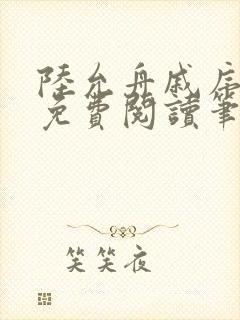 陸允舟戚辰
免費閱讀筆
笑笑夜